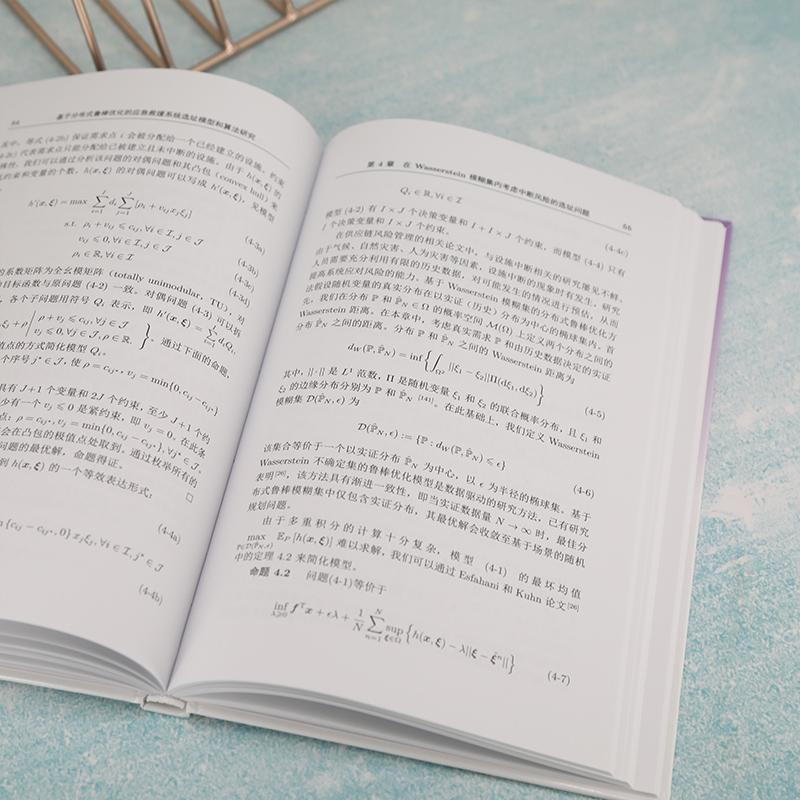 54 基于分布式鲁棒优化的应急救援系统选址模型和算法研究
其中，等式 (4-2b) 保证需求点 i 会被分配给一个已经建立的设施，约束
(4-2c) 代表需求点只能分配给已被建立且未中断的设施。由于 h(x, ξ) 的
性，我们可以通过分析该问题的对偶问题和其凸包（convex hull）来
约束和变量的个数，h(x, ξ) 的对偶问题可以写成 h'(x, ξ)，见模型
h'(x, ξ) = max ∑_{i=1}^{I} d_i ∑_{j=1}^{J} [ρ_i + v_{ij}x_jξ_j]
s.t. ρ_i + v_{ij} ≤ c_{ij}, ∀i ∈ I, j ∈ J (4-3a)
v_{ij} ≤ 0, ∀i ∈ I, j ∈ J (4-3b)
ρ_i ∈ R, ∀i ∈ I (4-3c)
(4-3d)
的系数矩阵为全幺模矩阵（totally unimodular, TU），对
的目标函数与原问题 (4-2) 一致。对偶问题 (4-3) 可以拆
，各个子问题用符号 Q_i 表示，即 h'(x, ξ) = ∑_{i=1}^{I} d_iQ_i,
ξ_j + ρ | ρ + v_j ≤ c_{ij}, ∀j ∈ J
v_j ≤ 0, ∀j ∈ J, ρ ∈ R. }。通过下面的命题，
值点的方式简化模型 Q_i。
个序号 j* ∈ J, 使 ρ = c_{ij*}, v_j = min{0, c_{ij*} − c_{ij}}
具有 J+1 个变量和 2J 个约束，至少 J+1 个约
少有一个 v_j ≤ 0 是紧约束，即 v_j = 0。在此条
点：ρ = c_{ij*}, v_j = min{0, c_{ij*} − c_{ij}}, ∀j* ∈ J。
会在凸包的极值点处取到。通过枚举所有的
问题的最优解，命题得证。 □
到 h(x, ξ) 的一个等效表达形式：
(4-4a)
n {c_{ij*} − c_{ij}, 0} x_jξ_j, ∀i ∈ I, j* ∈ J
(4-4b)
第 4 章 在 Wasserstein 模糊集内考虑中断风险的选址问题 55
Q_i ∈ R, ∀i ∈ I (4-4c)
模型 (4-2) 有 I × J 个决策变量和 I + I × J 个约束，而模型 (4-4) 只有
I 个决策变量和 I × J 个约束。
在供应链风险管理的相关论文中，与设施中断相关的研究屡见不鲜。
由于气候、自然灾害、人为灾害等因素，设施中断的现象时有发生，研究
人员需要充分利用有限的历史数据，对可能发生的情况进行预估，从而
提高系统应对风险的能力。基于 Wasserstein 模糊集的分布式鲁棒优化方
法假设随机变量的真实分布在以实证（历史）分布为中心的椭球集内。首
先，我们在分布 P 和 P̂_N ∈ Ω 的概率空间 M(Ω) 上定义两个分布之间的
Wasserstein 距离。在本章中，考虑真实需求 P 和由历史数据决定的实证
分布 P̂_N 之间的距离。分布 P 和 P̂_N 之间的 Wasserstein 距离为
d_W(P, P̂_N) = inf { ∫_{Ω²} ||ξ_1 − ξ_2||Π(dξ_1, dξ_2) } (4-5)
其中，|| · || 是 L¹ 范数，Π 是随机变量 ξ_1 和 ξ_2 的联合概率分布，且 ξ_1 和
ξ_2 的边缘分布分别为 P 和 P̂_N [141]。在此基础上，我们定义 Wasserstein
模糊集 D(P̂_N, ϵ) 为
D(P̂_N, ϵ) := {P : d_W(P, P̂_N) ≤ ϵ} (4-6)
该集合等价于一个以实证分布 P̂_N 为中心，以 ϵ 为半径的椭球集。基于
Wasserstein 不确定集的鲁棒优化模型是数据驱动的研究方法，已有研究
表明[26]，该方法具有渐进一致性，即当实证数据量 N → ∞ 时，最佳分
布式鲁棒模糊集中仅包含实证分布，其最优解会收敛至基于场景的随机
规划问题。
由于多重积分的计算十分复杂，模型 (4-1) 的最坏均值
max_{P∈D(P̂_N,ϵ)} E_P [h(x, ξ)] 难以求解，我们可以通过 Esfahani 和 Kuhn 论文[26]
中的定理 4.2 来简化模型。
命题 4.2 问题(4-1)等价于
inf_{λ≥0} f^T x + ϵλ + 1/N ∑_{n=1}^{N} sup_{ξ∈Ω} {h(x, ξ) − λ||ξ − ξ̂^n||} (4-7)